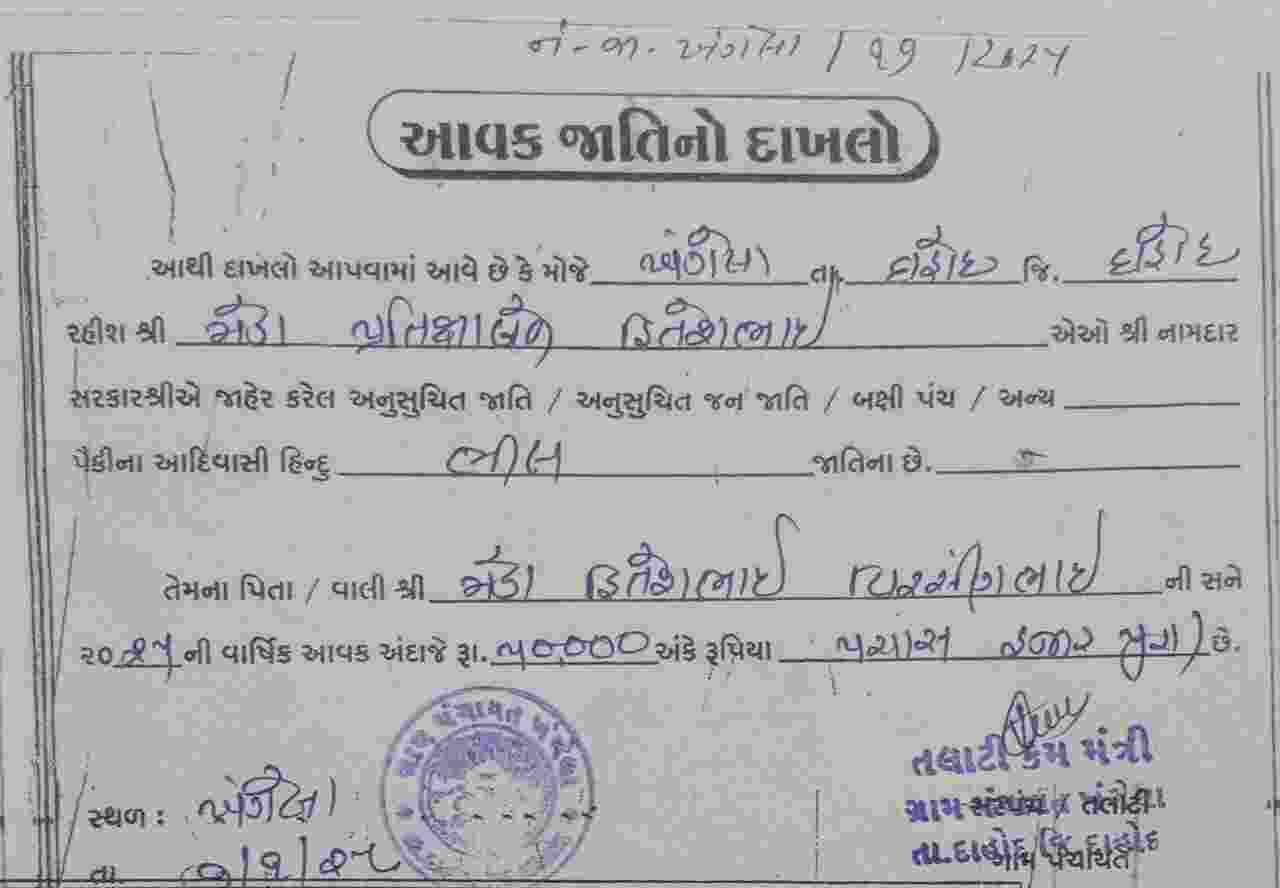 નં-જા- ખંગેલા / ૧૭ /2024
આવક જાતિનો દાખલો
આથી દાખલો આપવામાં આવે છે કે મોજે ખંગેલા તા. દાહોદ જિ. દાહોદ
રહીશ શ્રી મેડા પ્રતિક્ષાબેન હિતેશભાઇ એઓ શ્રી નામદાર
સરકારશ્રીએ જાહેર કરેલ અનુસુચિત જાતિ / અનુસુચિત જન જાતિ / બક્ષી પંચ / અન્ય
પૈકીના આદિવાસી હિન્દુ ભીલ જાતિના છે.
તેમના પિતા / વાલી શ્રી મેડા હિતેશભાઇ ની સને
૨૦૨૫ ની વાર્ષિક આવક અંદાજે રૂા. ૫૦,૦૦૦ અંકે રૂપિયા પચાસ હજાર પુરા છે.
ગ્રામ પંચાયત ખંગેલા
તલાટી કમ મંત્રી
સ્થળ : ખંગેલા
ગ્રામ સરપંચ / તલાટી
તા.દાહોદ જિ.દાહોદ
ગ્રામ પંચાયત
તા. ૭/૧/૨૫